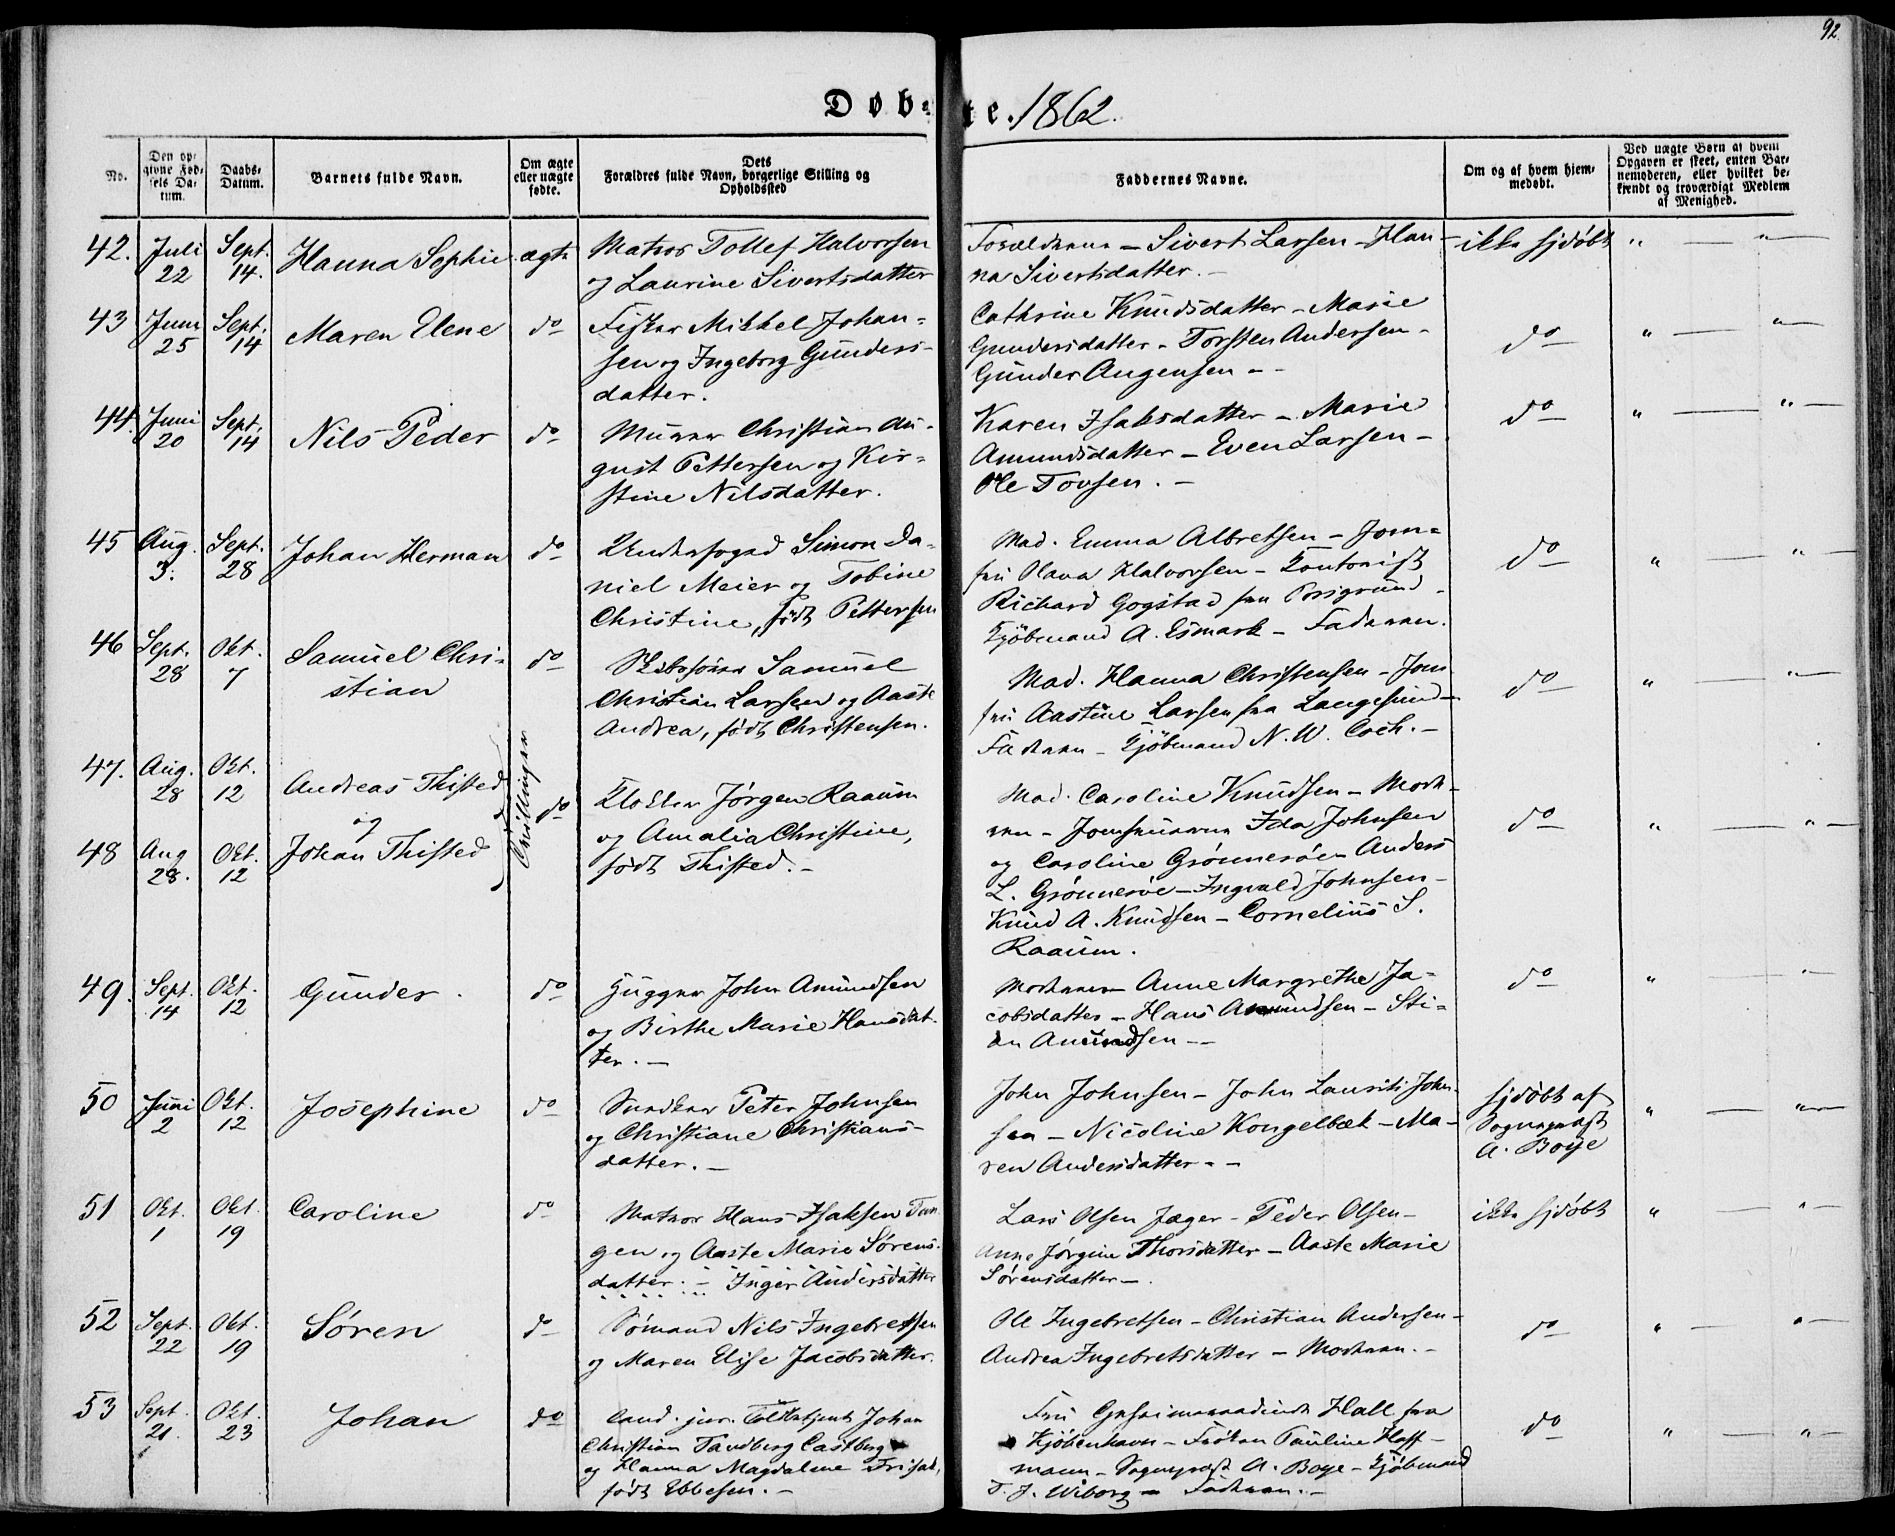 92.
Døbte. 1862.
No. | Den opgivne Fødsels Datum. | Daabs-Datum. | Barnets fulde Navn. | Om ægte eller uægte fødte. | Dets Forældres fulde Navn, borgerlige Stilling og Opholdssted | Faddernes Navne. | Om og af hvem hjemmedøbt. | Ved uægte Børn af hvem Opgaven er skeet, enten Barnemoderen, eller hvilket bekjendt og troværdigt Medlem af Menighed.
42. Juli 22 Sept. 14. Hanna Sophie ægte
Matros Tollef Halvorsen
og Laurine Sivertsdatter
Forældrene – Sivert Larsen – Han-
na Sivertsdatter. –
ikke hjdøbt " — " —
43 Juni 25 Sept. 14 Maren Elene do
Fisker Mikkel Johan-
sen og Ingeborg Gunders-
datter.
Cathrine Knudsdatter – Marie
Gundersdatter – Torsten Andersen –
Gunder Augensen –
do " — " —
44. Juni 20 Sept. 14 Nils Peder do
Murer Christian Au-
gust Pettersen og Kir-
stine Nilsdatter.
Karen Isaksdatter – Marie
Amundsdatter – Even Larsen –
Ole Tovsen. –
do " — " —
45 Aug. 3. Sept. 28 Johan Herman do
Underfoged Simon Da-
niel Meier og Tobine
Christine, født Pettersen
Mad. Emma Albretsen – Jom-
fru Olava Halvorsen – Kontorist
Richard Gogstad fra Porsgrund –
Kjöbmand A. Esmark – Faderen.
do " — " —
46 Sept. 28 Okt. 7 Samuel Chri-
stian do
Skibsfører Samuel
Christian Larsen og Aaste
Andrea, født Christensen.
Mad. Hanna Christensen – Jom
fru Aastine Larsen fra Langesund –
Faderen – Kjöbmand N. W. Coch. –
do " — " —
47. Aug. 28 Okt. 12 Andreas Thisted
og
48 Aug 28. Okt. 12 Johan Thisted
Tvillinger do
Klokker Jørgen Raaum
og Amalia Christine,
født Thisted. –
Mad. Caroline Knudsen – Mode-
ren – Jomfruerne Ida Johnsen
og Caroline Grønnerøe – Anders
L. Grønnerøe – Ingvald Johnsen –
Knud A. Knudsen – Cornelius S.
Raaum.
do " — " —
49. Sept. 14 Okt. 12 Gunder do
Hugger John Amundsen
og Birthe Marie Hansdat-
ter. –
Moderen – Anne Margrethe Ja-
cobsdatter – Hans Amundsen – Sti-
an Amundsen –
do " — "
50 Juni 2 Okt. 12 Josephine do
Snedker Peter Johnsen
og Christiane Christians-
datter. –
John Johnsen – John Laurits John-
sen – Nicoline Kongelbæk – Ma-
ren Andersdatter. –
hjdøbt af
Sognepræst
A. Boye
" — " —
51 Okt. 1 Okt. 19 Caroline do
Matros Hans Isaksen Tan
gen og Aaste Marie Sørens-
datter. – Inger Andersdatter
Lars Olsen Jæger – Peder Olsen –
Anne Jørgine Thorsdatter – Aaste Marie
Sørensdatter –
ikke hjdøbt " — " —
52 Sept. 22 Okt. 19 Søren do
Sømand Nils Ingebretsen
og Maren Elise Jacobsdatter.
Ole Ingebretsen – Christian Andersen –
Andrea Ingebretsdatter – Moderen. –
do " — " —
53 Sept. 21. Okt. 23 Johan do
Cand. jur. Toldbetjent Johan
Christian Tandberg Castberg
og Hanna Magdalene Frisak,
født Ebbesen. –
Fru Geheimeraadinde Hall fra
Kjöbenhavn – Frøken Pauline Hoff-
mann – Sognepræst A. Boye – Kjöbmand
T. J. Wiborg – Faderen. –
do " — " —